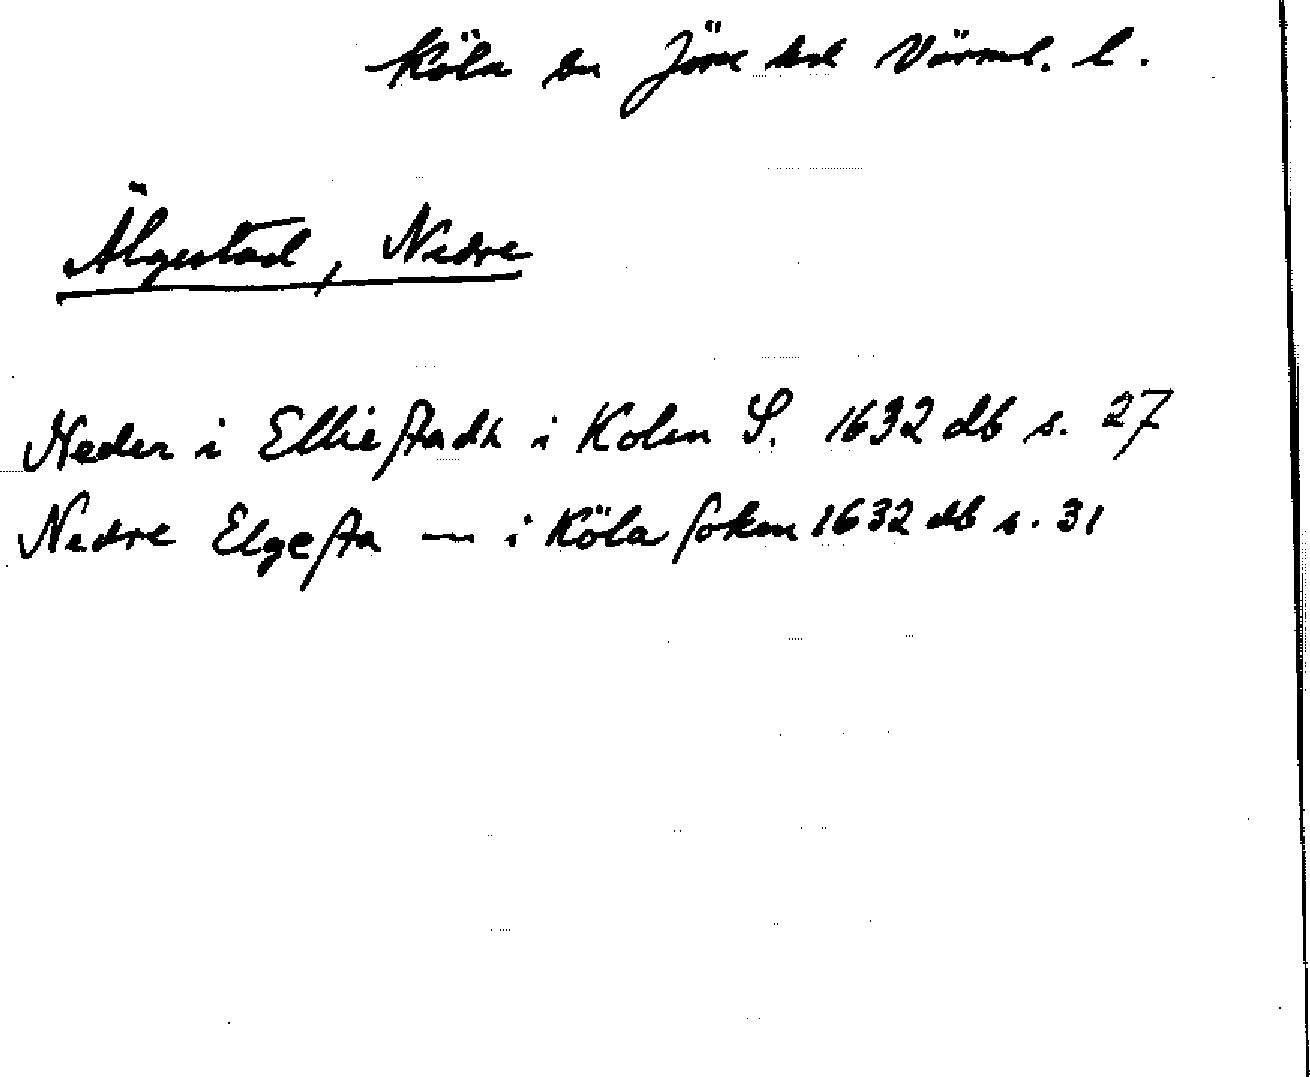 Köla sn Jösse hd Värml. l.
Älgestad, Nedre
Neder i Elliestadh i Kolen S. 1632 db s. 27
Nedre Elgesta — i Köla soken 1632 db s. 31